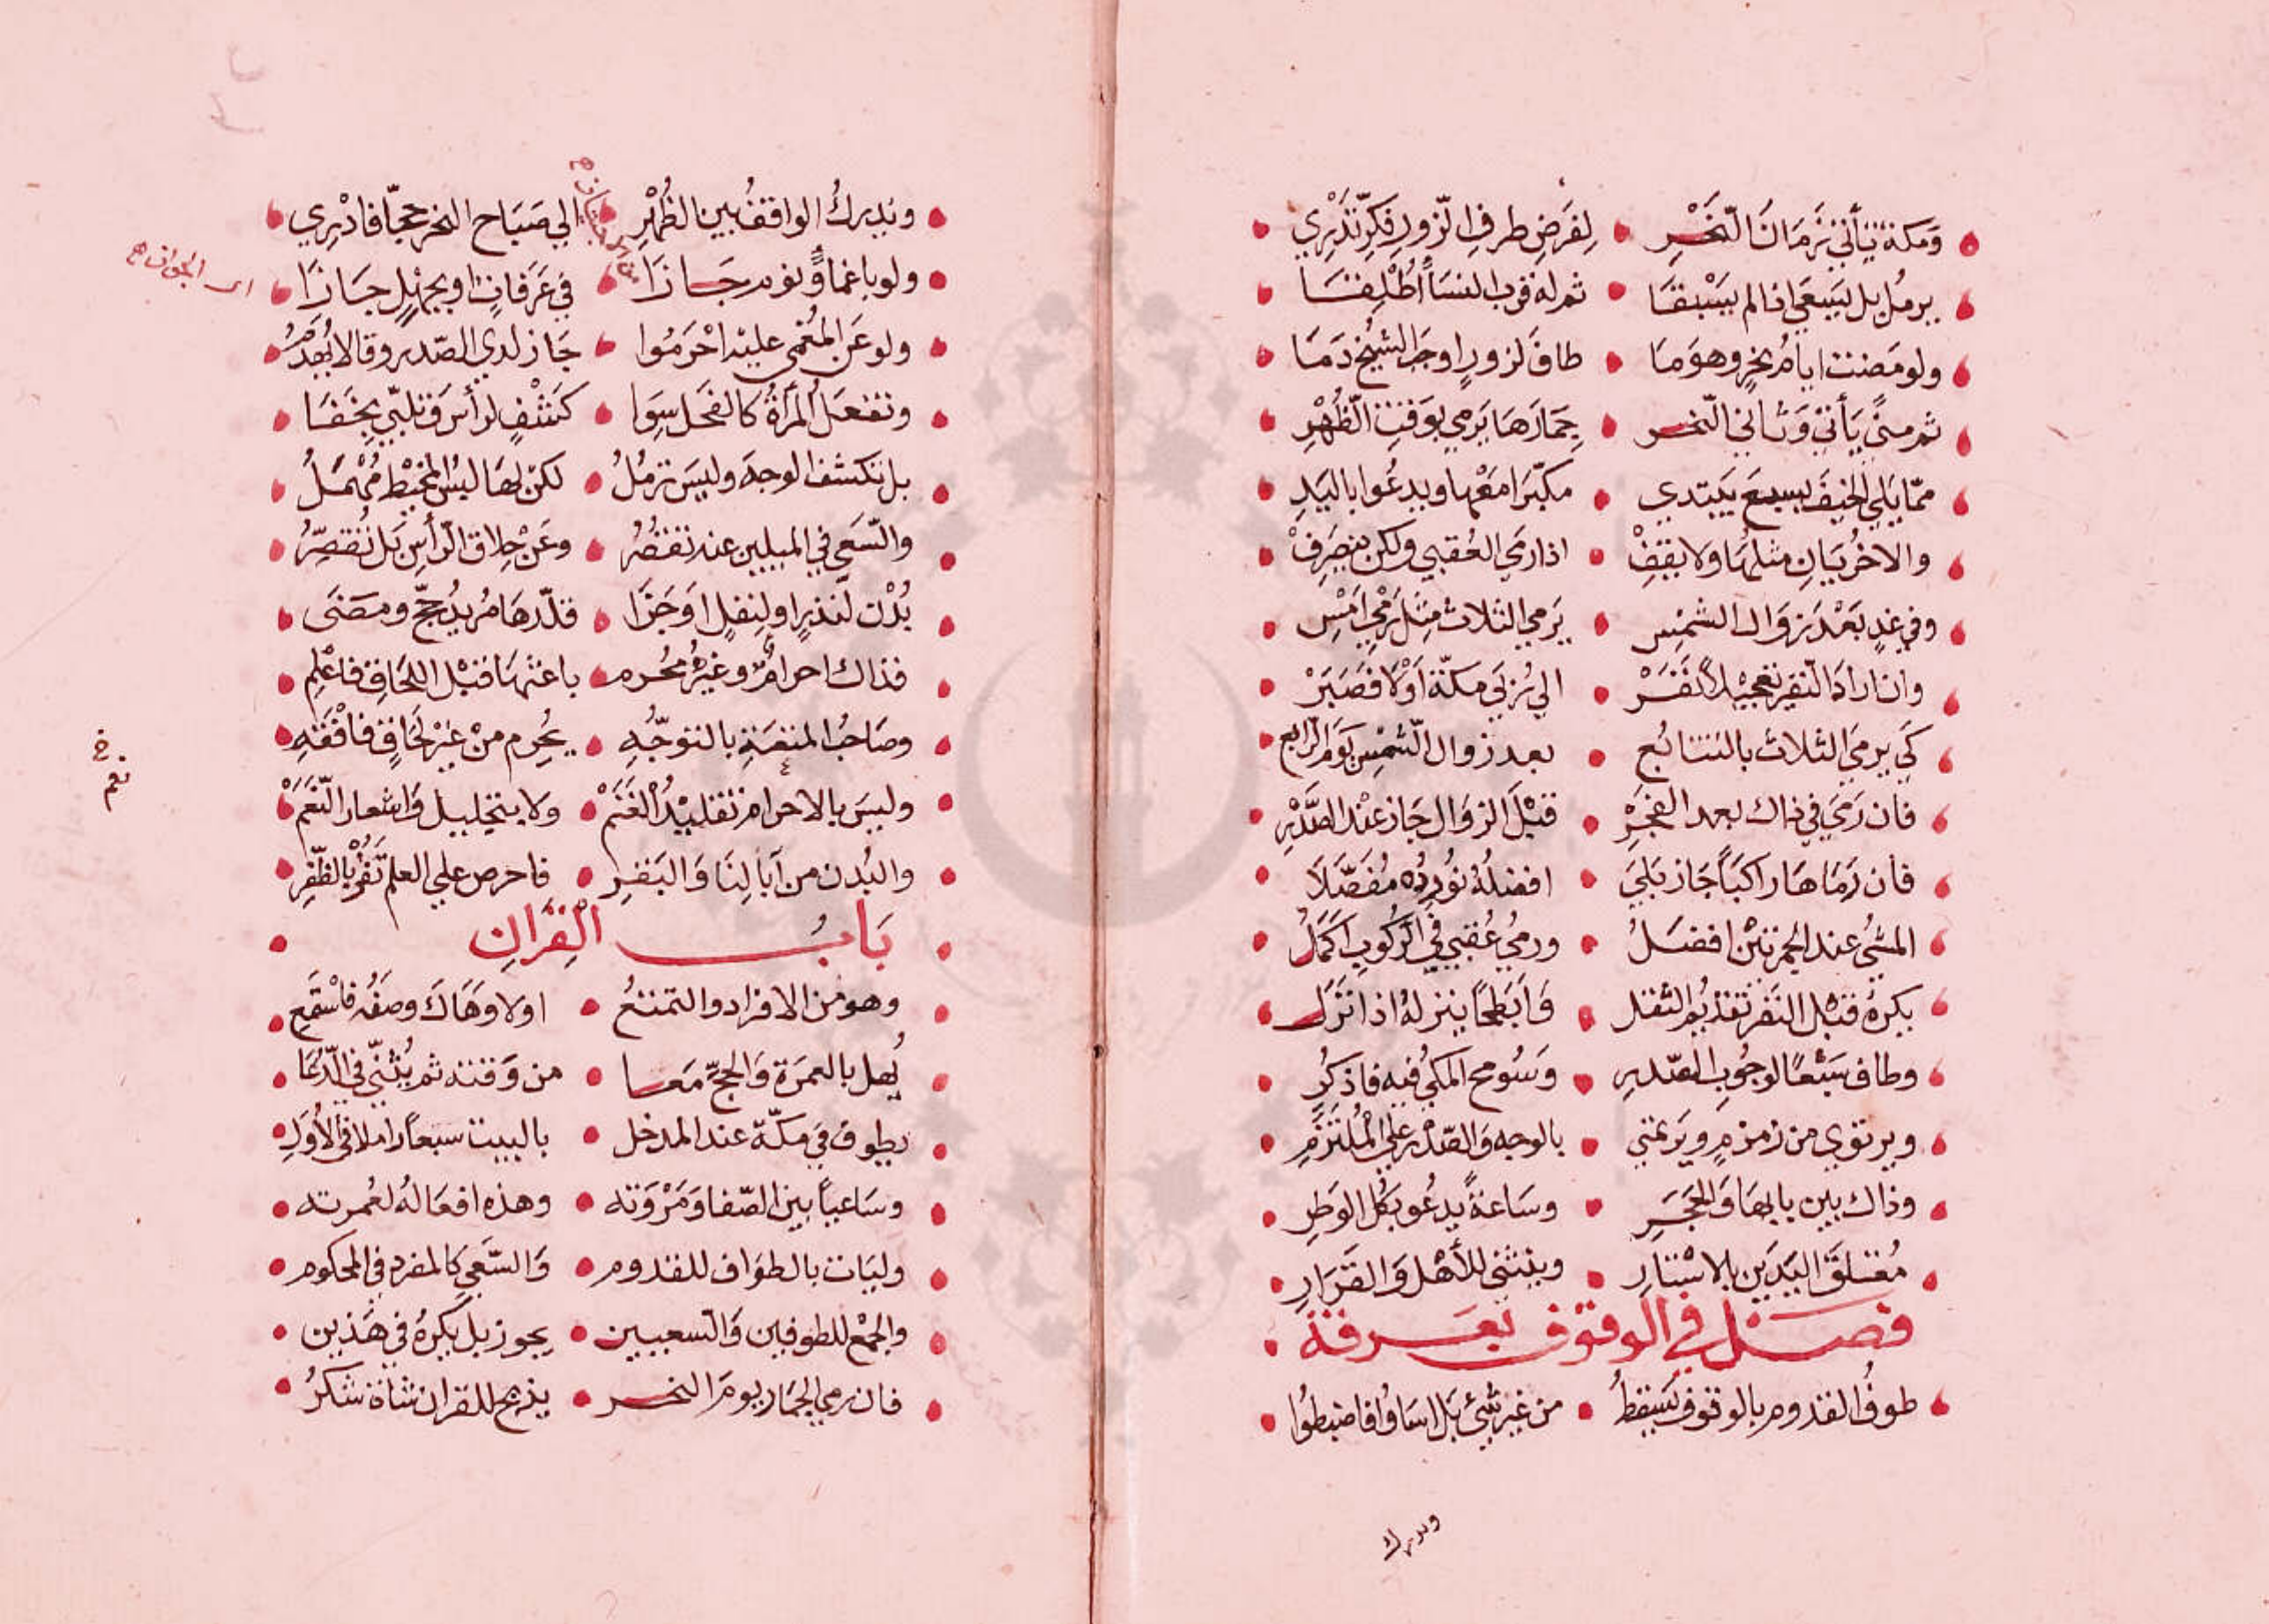 وَمكة يأتي زمَانَ النَّحْرِ • لِفرَضِ طرفِ الزّورِ فكرّ تَدْرِي
يرمُل بل ليَسعَي اذا لم يَسْبقَا • ثم له قرب النسَا أُطْلِقَا
ولو مَضت ايامُ نحرٍ وهوَ مَا • طافَ لزورٍ اوجَبَ الشيخ دَمَا
ثم منًي يَأتي وَثَاني النّحر • جِمَارَهَا يَرمي بوَقتِ الظُهْرِ
ممّا يَلي الخيفَ بسبعٍ يَبتدي • مكبّرًا معْها ويدعُوا باليَدِ
والاخرُيَانِ مثلهَا ولا يقِفْ • اذا رمَي العُقبي ولكن ينصَرِفْ
وفي غدٍ بَعْدَ زوَال الشمْسِ • يَرمي الثلاثَ مِثل رَمْي امَسْ
وان ارادَ النفر تعجيْلاً نَفَرْ • الي ربَي مكّة اوْلا فصَبَرْ
كي يرميَ الثلاث بالتتابُع • بعد زوال الشّمْسِ يَوم الرّابع
فان رَمَي في ذاك بعد الفجْرِ • قبْلَ الزوَال جَاز عنْد الصَّدْرِ
فان رَمَاهَا راكبًا جَاز بَلَي • افضلُهُ نُورِدُه مُفصَّلاَ
المشيُ عند الجمرتيْن افضلُ • ورميُ عُقبي في الرُّكوبِ اكمَلُ
يكرهُ قبْل النّفْر تقديُم الثقل • وَابَطحًا ينزلهُ اذا نَزَل
وطاف سَبْعًا لوجُوبِ الصّدرِ • وَسُومح المكيُ فيه فاذكُرِ
ويرتوي من زمزمٍ ويَرتمي • بالوجه وَالصّدْر علي المُلتَزَمِ
وذاك بين بابهَا وَالحَجَرِ • وسَاعةً يدعُو بكُل الوَطرِ
مُعتلقَ اليَدَينِ بالاسْتارِ • وينثني للأهْل وَالقرَارِ
فصل في الوقوف بعرفة
طوفُ القدوم بالوقوف يَسقطُ • من غير شيْءٍ بل اسَاوُا فاضبطُوا
ويدرك
ويُدركُ الواقفُ بين الظُهْرِ • الي صَبَاح النحر حجًّا فادْرِي
ولو باغماءٍ ونوم جَازَا • في عَرَفاتٍ او بجهْلٍ جَازَا
اى الجواز
ولو عَن المُغمي عليْه احْرَمُوا • جَاز لدي الصّدر وقالا يُهدَمُ
وتفعَل المرأةُ كالفحَل سِوا • كَشْفٍ لرأسٍ وتلبّي بخَفَا
بل تكشف الوجهَ وليسَ ترمُلُ • لكن لهَا لبْس المخيْط مُهْمَلُ
والسّعي في الميلين عند تنفرُ • وعَنْ حِلاق الرّأسِ بَل تُقصِّرُ
بُدْن لنذرٍ او لِنفلٍ اوَ جَزَا • قلّدهَا مُريدُ حجّ ومضَى
فذاك احرامٌ وغيرهُ مُحُرم • باعثهَا قبْل اللحَاقِ فاعْلِم
وصَاحبُ المتعَةِ بالتوجّهِ • يحُرِم منْ غيْر لحَاقٍ فافْقَهِ
نعم
وليسَ بالاحرام تقليْدُ الغَنَمْ • ولا بتجليل وَاشعار النّعَمْ
والبُدن من آبالِنَا وَالبَقرِ • فاحرص علي العلم تَفُزْ بالظّفِرِ
بَابُ الْقِرَانِ
وهو من الافراد والتمتعُ • اولا وَهَاكَ وصفَه فاسْمَعِ
يُهل بالعمرَة وَالحجِّ مَعا • من وَقته ثم يُثنّي في الدّعَا
يطوف في مكّة عند المدخل • بالبيت سبعًا راملا في الأُوَلِ
وسَاعيًا بين الصّفا وَمَرْوَته • وهذه افعَالهُ لعُمرته
وليَات بالطوَاف للقدوم • وَالسّعي كالمفرد في المحكوم
والجمْع للطوفين وَالسعيين • يجوز بل يكرهُ في هَذين
فان رمي الجمَار يومَ النحر • يذبح للقران شاة شكرُ